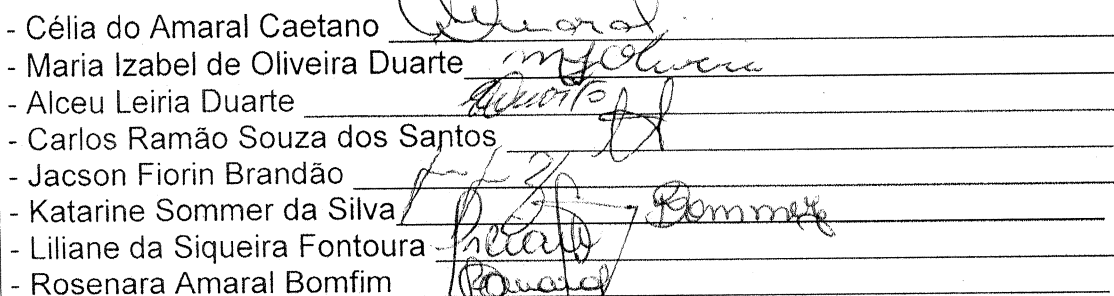 - Célia do Amaral Caetano Amaral
- Maria Izabel de Oliveira Duarte
- Alceu Leiria Duarte
- Carlos Ramão Souza dos Santos
- Jacson Fiorin Brandão
- Katarine Sommer da Silva
- Liliane da Siqueira Fontoura
- Rosenara Amaral Bomfim